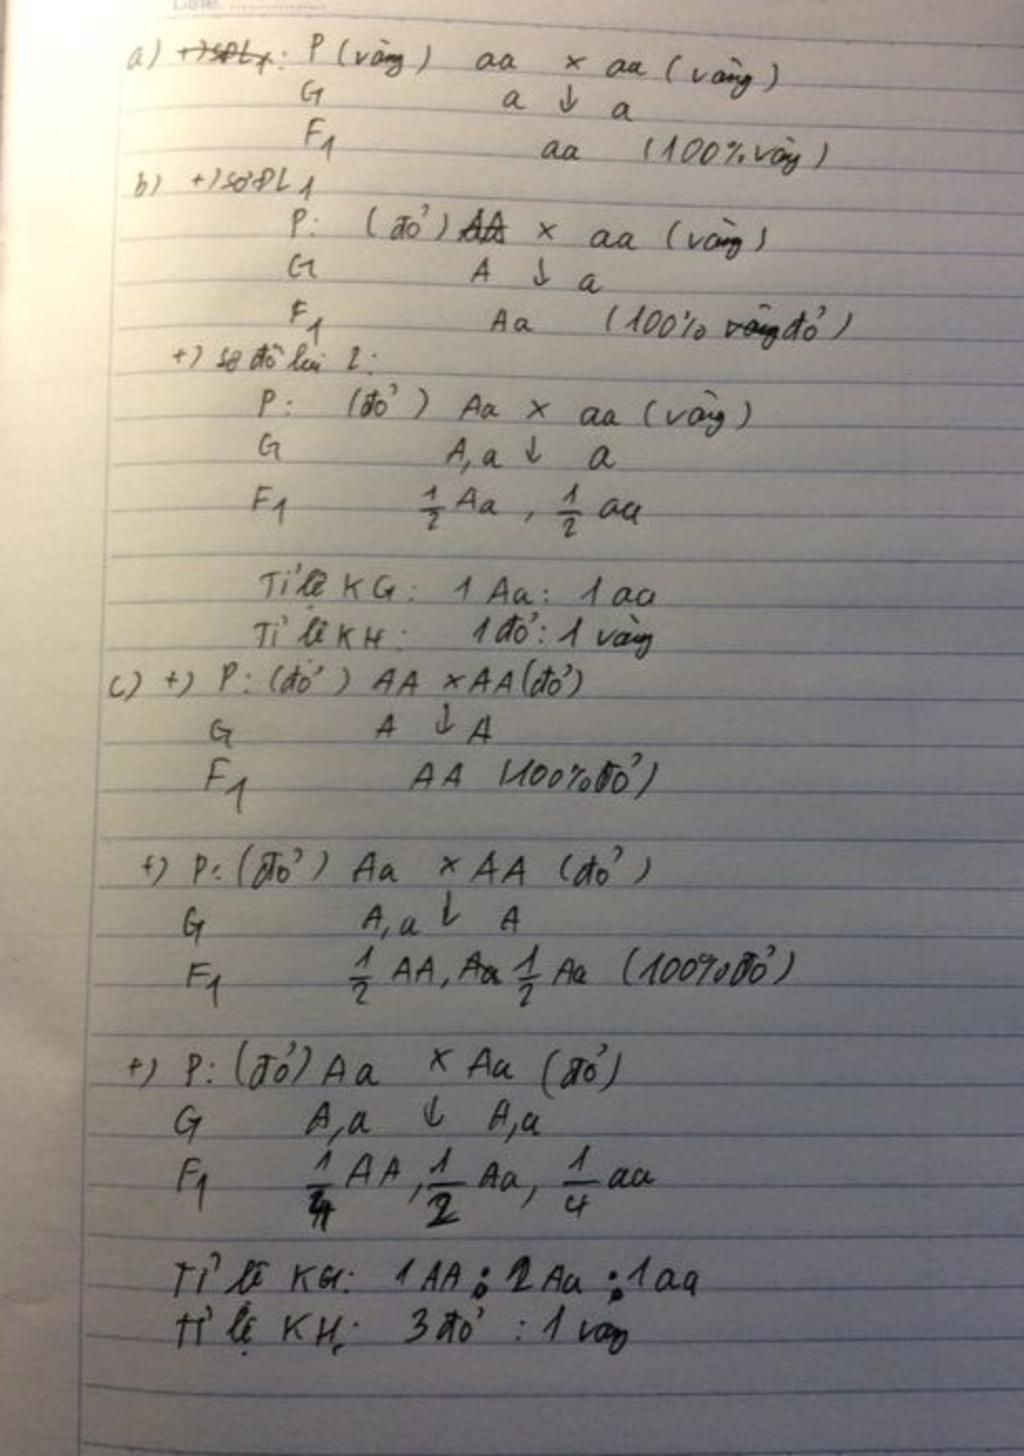 Date:
a) +) SĐL1: P (vàng) aa x aa (vàng)
G a ↓ a
F1 aa (100% vàng)
b) +) sơ ĐL 1
P: (đỏ) AA x aa (vàng)
G A ↓ a
F1 Aa (100% vàng đỏ)
+) sơ đồ lai 2:
P: (đỏ) Aa x aa (vàng)
G A, a ↓ a
F1 1/2 Aa, 1/2 aa
Tỉ lệ KG: 1 Aa: 1 aa
Tỉ lệ KH: 1 đỏ: 1 vàng
c) +) P: (đỏ) AA x AA (đỏ)
G A ↓ A
F1 AA (100% đỏ)
+) P: (đỏ) Aa x AA (đỏ)
G A, a ↓ A
F1 1/2 AA, Aa 1/2 Aa (100% đỏ)
+) P: (đỏ) Aa x Aa (đỏ)
G A, a ↓ A, a
F1 1/4 AA, 1/2 Aa, 1/4 aa
Tỉ lệ KG: 1 AA : 2 Aa : 1 aa
Tỉ lệ KH: 3 đỏ : 1 vàng